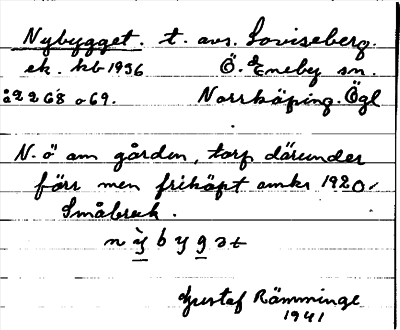 Nybygget. t. avs. Loviseberg.
ek. kb 1936 Ö. Eneby sn.
å2 2 68 o 69. Norrköping. Ögl
N. ö om gården, torp därunder
förr men friköpt omkr 1920.
Småbruk.
n ỳ b y g ə t
Gustaf Rämminge
1941